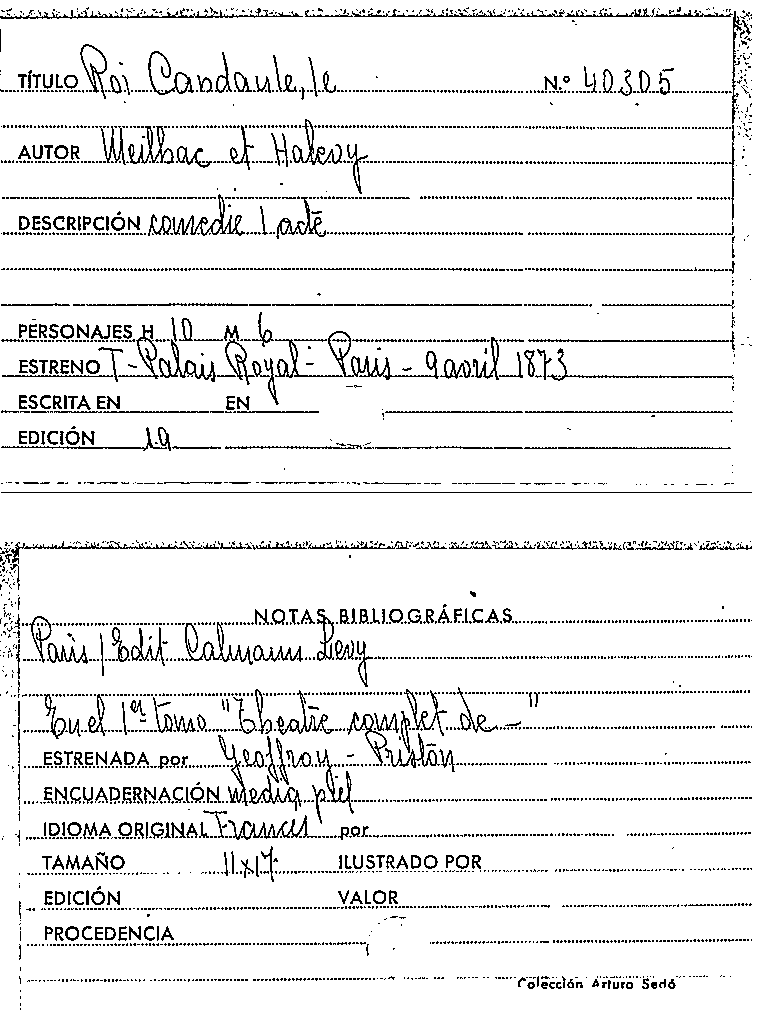 TÍTULO Roi Candaule, le N.º 40305
AUTOR Meilhac et Halevy
DESCRIPCIÓN comedie 1 acte
PERSONAJES H 10 M 6
ESTRENO T-Palais Royal- Paris - 9 avril 1873
ESCRITA EN EN
EDICIÓN 19
NOTAS BIBLIOGRÁFICAS
Paris / Edit Calmann Levy
En el 1er tomo "Theatre complet de —"
ESTRENADA por Geoffroy - Priston
ENCUADERNACIÓN media piel
IDIOMA ORIGINAL Frances por
TAMAÑO 11x17 ILUSTRADO POR
EDICIÓN VALOR
PROCEDENCIA
Colección Arturo Sedó